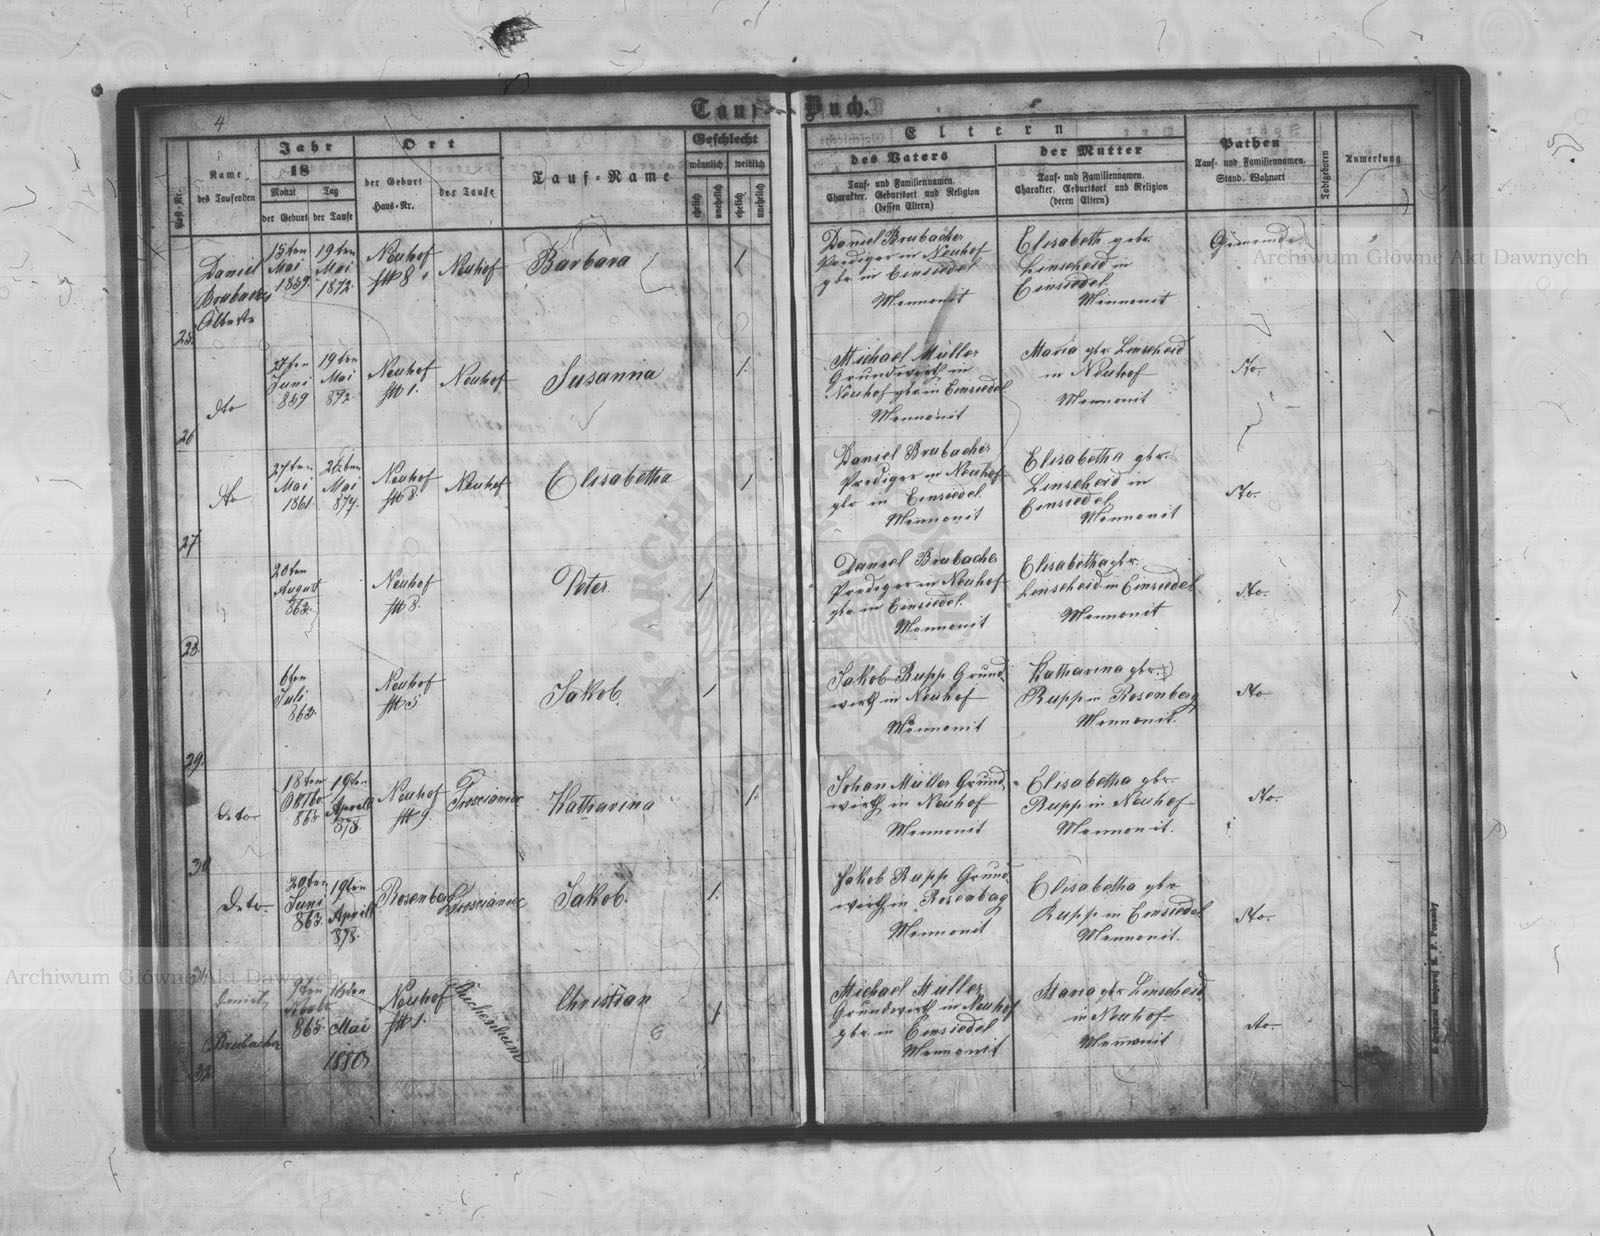 4
Tauf-
Buch.
Post-Nr.
Name
des Taufenden
Jahr
18
Monat
Tag
der Geburt
der Taufe
Ort
der Geburt
Haus-Nr.
der Taufe
Tauf-Name
Geschlecht
männlich
weiblich
ehelich
unehelich
ehelich
unehelich
Eltern
des Vaters
Tauf- und Familiennamen.
Charakter. Geburtsort und Religion
(dessen Eltern)
der Mutter
Tauf- und Familiennamen.
Charakter. Geburtsort und Religion
(deren Eltern)
Pathen
Tauf- und Familiennamen.
Stand. Wohnort
Todtgeboren
Anmerkung
25.
Daniel
Brubacher
15ten
Mai
1859.
19ten
Mai
1872.
Neuhof
№ 8.
Neuhof
Barbara
1
Daniel Brubacher
Prediger in Neuhof
gbr. in Einsiedel
Mennonit
Elisabeth gebr.
Linscheid in
Einsiedel
Mennonit
Gemeinde
26
dto
27ten
Juni
859
19ten
Mai
872.
Neuhof
№ 1.
Neuhof
Susanna
1.
Michael Müller
Grundwirth in
Neuhof gbr. in Einsiedel
Mennonit
Maria gbr. Linscheid
in Neuhof
Mennonit
dto.
27
dto
27ten
Mai
1861.
Mai
874.
Neuhof
№ 8.
Neuhof
Elisabetha
1
Daniel Brubacher
Prediger in Neuhof
gbr. in Einsiedel.
Mennonit
Elisabetha gbr.
Linscheid in
Einsiedel
Mennonit
dto.
28.
20ten
August
862.
Neuhof
№ 8.
Peter
1
Daniel Brubacher
Prediger in Neuhof
gbr. in Einsiedel.
Mennonit
Elisabetha gbr.
Linscheid in Einsiedel
Mennonit
dto.
29.
6ten
Juli
863.
Neuhof
№ 5
Jakob.
1
Jakob Rupp Grund-
wirth in Neuhof
Mennonit
Katharina gbr.
Rupp in Rosenberg
Mennonit.
dto
30
Deto
18ten
Oktbr
19ten
Aprill
878.
Neuhof
№ 9.
Katharina
1.
Johan Müller Grund-
wirth in Neuhof
Mennonit
Elisabetha gbr.
Rupp in Neuhof
Mennonit.
dto.
31.
Deto.
20ten
Juni
863.
19ten
Aprill
878.
Jakob.
1.
Jakob Rupp Grund-
wirth in
Mennonit
Elisabetha gbr
Rupp in Einsiedel
Mennonit.
dto.
32
Daniel
Brubacher
9ten
865.
Mai
1880
Neuhof
№ 1.
Christian
1
Michael Müller
Grundwirth in Neuhof
gbr. in Einsiedel
Mennonit
Maria gbr. Linscheid
in Neuhof
Mennonit
dto.
Archiwum Główne Akt Dawnych
Archiwum Główne Akt Dawnych